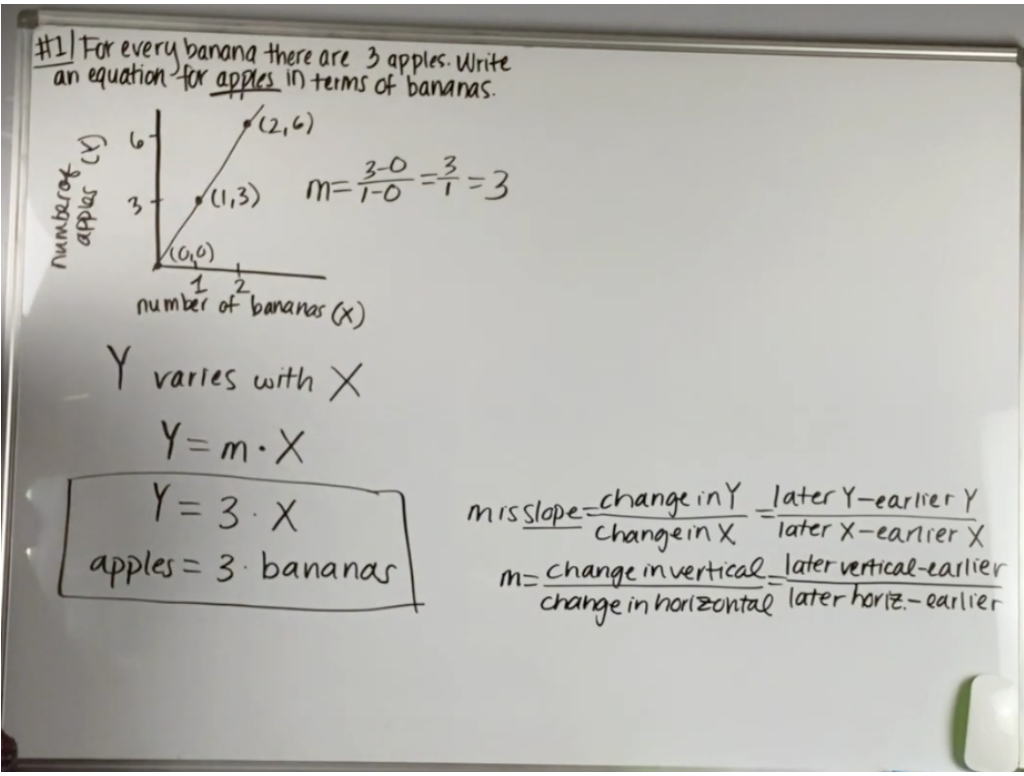 #1| For every banana there are 3 apples. Write
an equation for apples in terms of bananas.
number of
apples (Y)
6
(2,6)
3
(1,3)
(0,0)
1 2
number of bananas (X)
m = 3-0/1-0 = 3/1 = 3
Y varies with X
Y = m · X
Y = 3 · X
apples = 3 · bananas
m is slope = change in Y/change in X = later Y-earlier Y/later X-earlier X
m = change in vertical/change in horizontal = later vertical-earlier/later horiz.-earlier